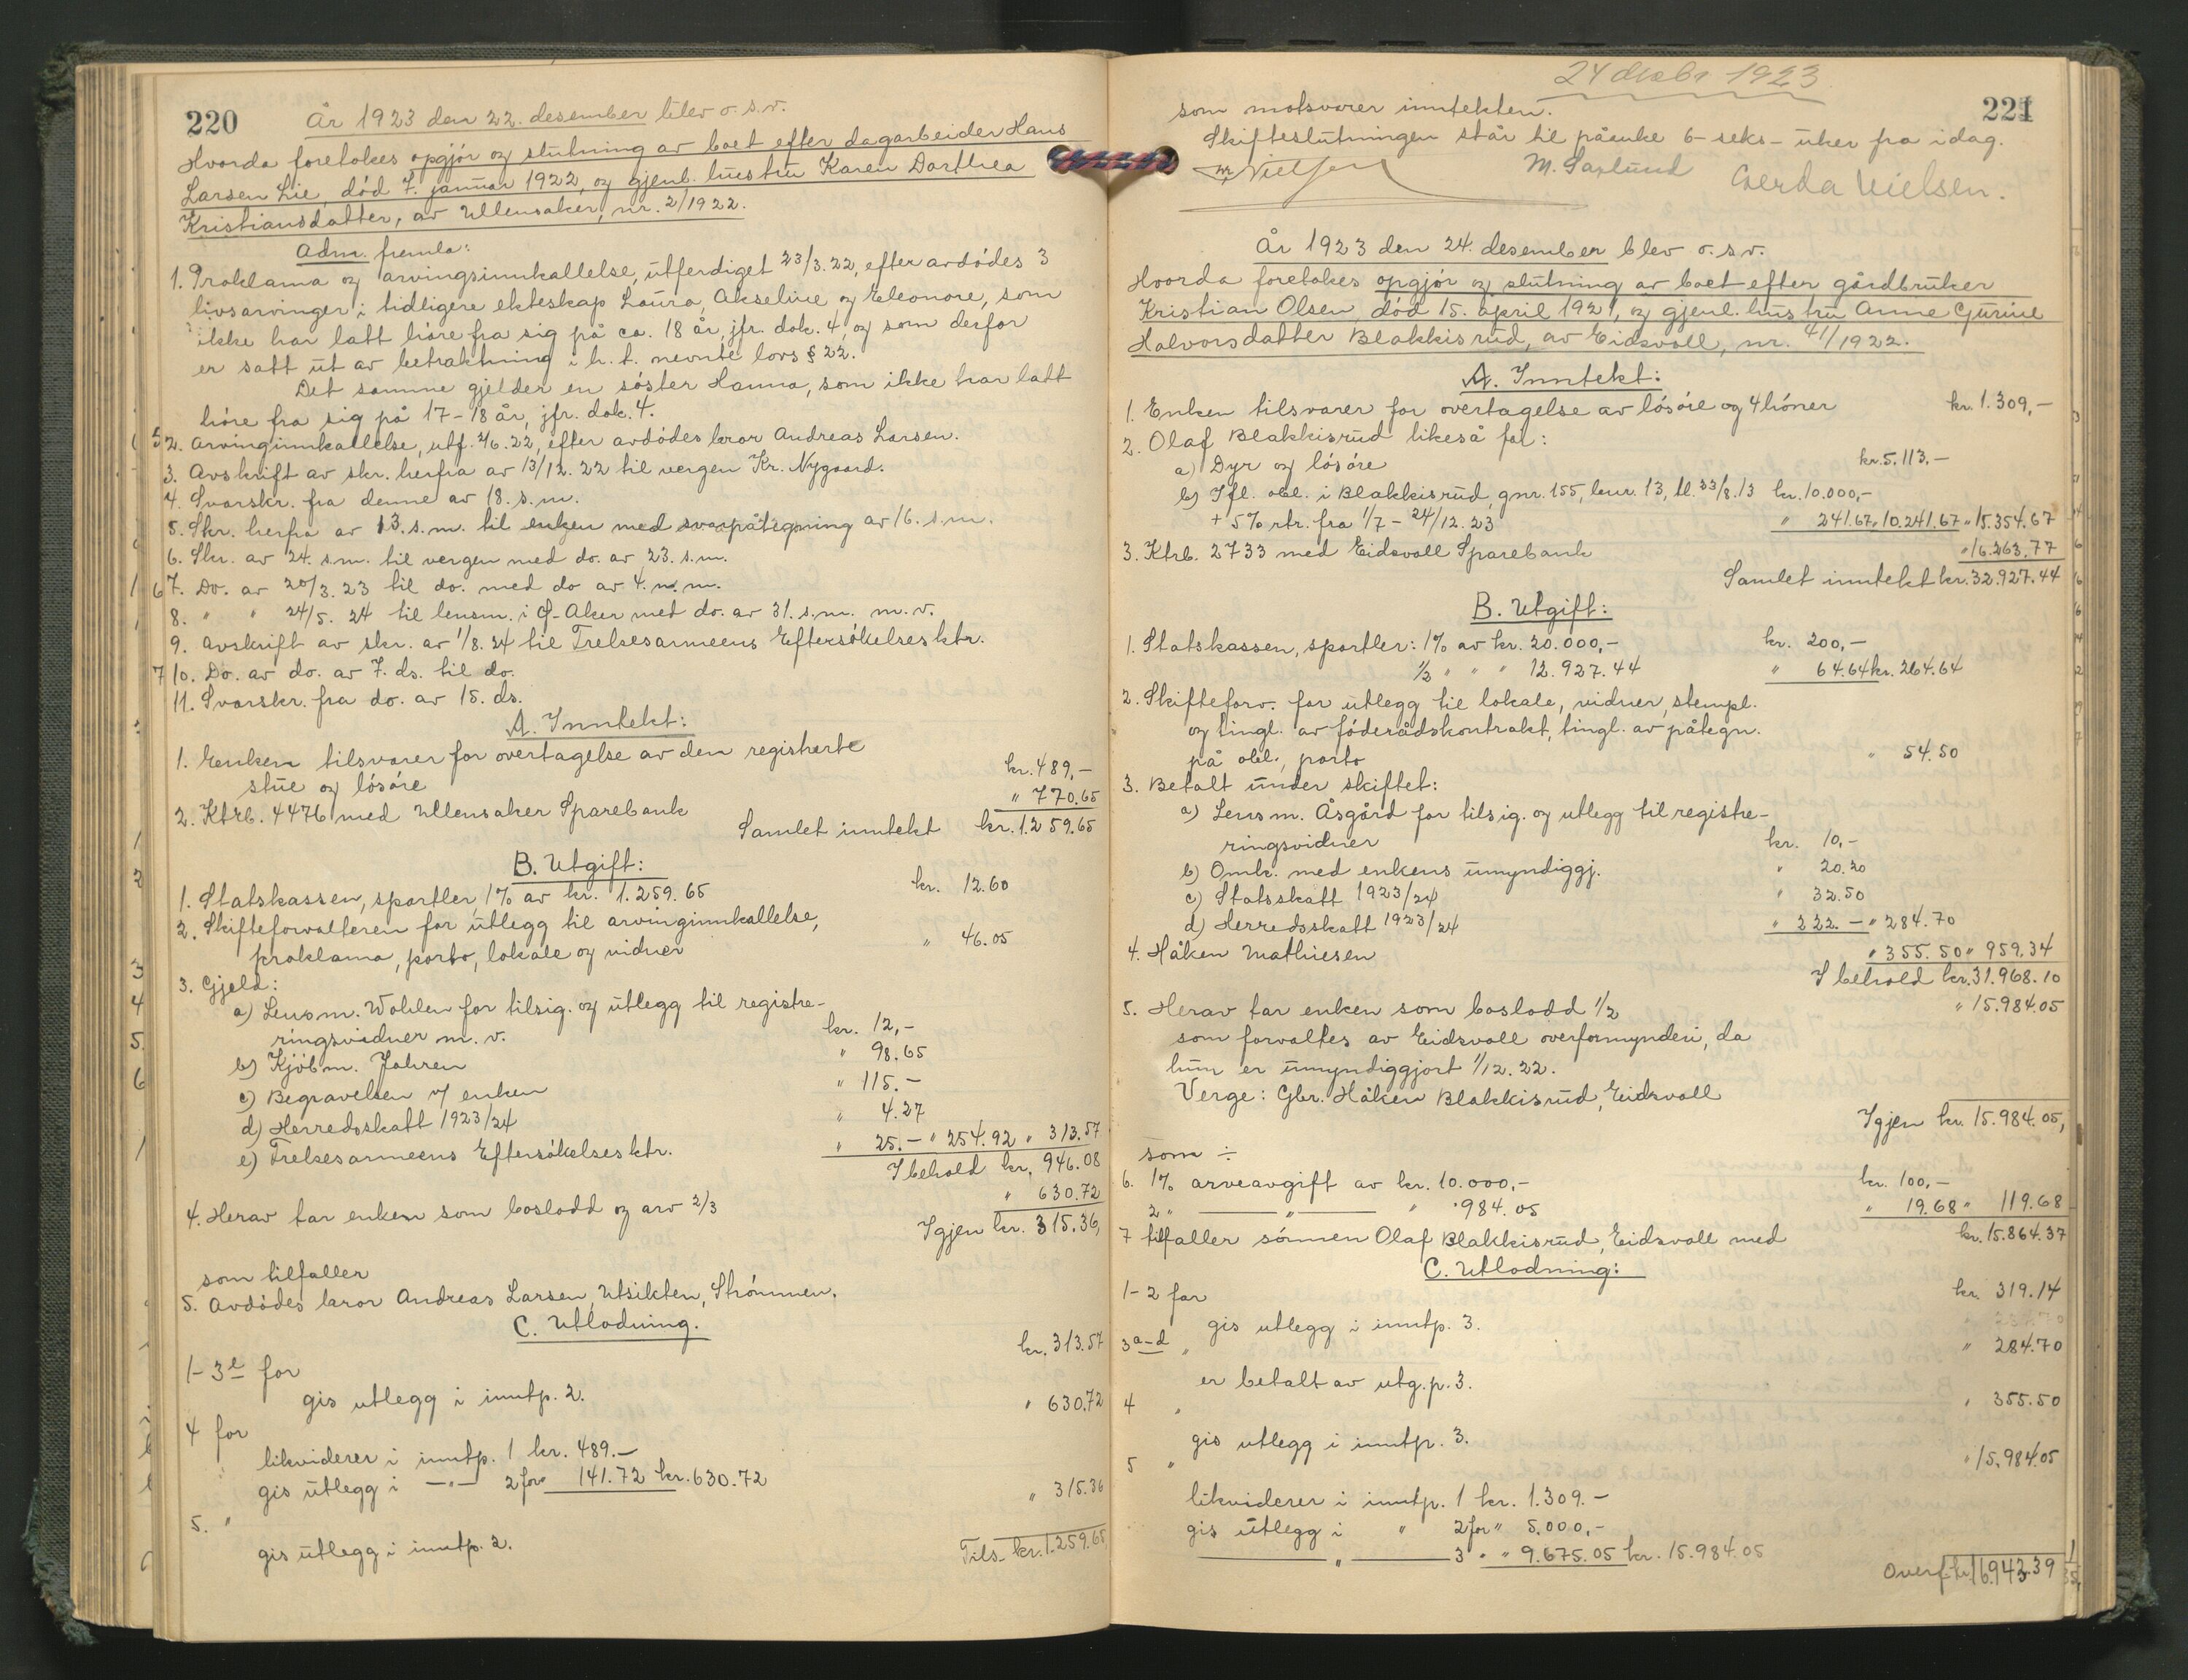 220
År 1923 den 22. desember blev o.s.v.
Hvorda foretokes opgjør og slutning av boet efter dagarbeider Hans
Larsen Lie, død 7. januar 1922, og gjenl. hustru Karen Dorthea
Kristiansdatter, av Ullensaker, nr. 2/1922.
Adm. fremla:
1. Proklama og arvingsinnkallelse, utferdiget 23/3.22, efter avdødes 3
livsarvinger i tidligere ekteskap Laura, Akseline og Eleonore, som
ikke har latt høre fra sig på ca. 18 år, jfr. dok. 4, og som derfor
er satt ut av betraktning i h. t. nevnte lovs § 22.
Det samme gjelder en søster Hanna, som ikke har latt
høre fra sig på 17-18 år, jfr. dok. 4.
2. Arvinginnkallelse, utf. 2/6.22, efter avdødes bror Andreas Larsen.
3. Avskrift av skr. herfra av 13/12. 22 til vergen Kr. Nygaard.
4. Svarskr. fra denne av 18. s.m.
5. Skr. herfra av 13. s.m. til enken med svarpåtegning av 16. s.m.
6. Skr. av 24. s.m. til vergen med do. av 23. s.m.
7. Do. av 20/3. 23 til do. med do av 4. n.m.
8. " " 24/5. 24 til lensm. i Ø-Aker med do. av 31. s.m. m.v.
9. Avskrift av skr. av 1/8. 24 til Frelsesarmeens Eftersøkelsesktr.
10. Do. av do. av 7. ds. til do.
11. Svarskr. fra do. av 15. ds.
A. Inntekt:
1. Enken tilsvarer for overtagelse av den registrerte
stue og løsøre kr. 489,-
2. Ktrb. 4476 med Ullensaker Sparebank " 770.65
Samlet inntekt kr. 1.259.65
B. Utgift:
1. Statskassen, sportler, 1% av kr. 1.259.65 kr. 12.60
2. Skifteforvalteren for utlegg til arvinginnkallelse,
proklama, porto, lokale og vidner " 46.05
3. Gjeld:
a) Lensm. Wohlen for tilsig. og utlegg til registre-
ringsvidner m. v. kr. 12,-
b) Kjøbm. Jahren " 98.65
c) Begravelsen v/ enken " 115.-
d) Herredsskatt 1923/24 " 4.27
e) Frelsesarmeens Eftersøkelsesktr. " 25.- " 254.92 " 313.57
I behold kr. 946.08
4. Herav tar enken som boslodd og arv 2/3 " 630.72
Igjen kr. 315.36,
som tilfaller
5. Avdødes bror Andreas Larsen, Utsikten, Strømmen.
C. Utlodning.
1-3e for kr. 313.57
gis utlegg i inntp. 2.
4 for " 630.72
likviderer i inntp. 1 kr. 489.-
gis utlegg i -"- 2 for " 141.72 kr. 630.72
5. " " 315.36
gis utlegg i inntp. 2.
Tils. kr. 1.259.65
24 desbr 1923
221
som motsvarer inntekten.
Skifteslutningen står til påanke 6 - seks - uker fra idag.
Nielsen M. Saxlund Gerda Nielsen.
År 1923 den 24. desember blev o.s.v.
Hvorda foretokes opgjør og slutning av boet efter gårdbruker
Kristian Olsen, død 15. april 1921, og gjenl. hustru Anne Gurine
Halvorsdatter Blakkisrud, av Eidsvoll, nr. 41/1922.
A. Inntekt:
1. Enken tilsvarer for overtagelse av løsøre og 4 høner kr. 1.309,-
2. Olaf Blakkisrud likeså for:
a) Dyr og løsøre kr. 5.113.-
b) Ifl. obl. i Blakkisrud, gnr. 155, bnr. 13, tl. 33/8.13 kr. 10.000,-
+ 5% rtr. fra 1/7 - 24/12. 23 " 241.67 " 10.241.67 " 15.354.67
3. Ktrb. 2733 med Eidsvoll Sparebank " 16.263.77
Samlet inntekt kr. 32.927.44
B. Utgift:
1. Statskassen, sportler: 1% av kr. 20.000,- kr. 200,-
1/2 " " " 12.927.44 " 64.64 kr. 264.64
2. Skifteforv. for utlegg til lokale, vidner, stempl.
og tingl. av føderådskontrakt, tingl. av påtegn.
på obl., porto " 54.50
3. Betalt under skiftet:
a) Lensm. Åsgård for tilsig. og utlegg til registre-
ringsvidner kr. 10,-
b) Omk. med enkens umyndiggj. " 20.20
c) Statsskatt 1923/24 " 32.50
d) Herredsskatt 1923/24 " 222.- " 284.70
4. Håken Mathiesen " 355.50 " 959.34
I behold kr. 31.968.10
5. Herav tar enken som boslodd 1/2 " 15.984.05
som forvaltes av Eidsvoll overformynderi, da
hun er umyndiggjort 1/12. 22.
Verge: Gbr. Håken Blakkisrud, Eidsvoll
Igjen kr. 15.984.05,
som ÷
6. 1% arveavgift av kr. 10.000,- kr. 100,-
2 " " " 984.05 " 19.68 " 119.68
7 tilfaller sønnen Olaf Blakkisrud, Eidsvoll med kr. 15.864.37
C. Utlodning:
1-2 for kr. 319.14
gis utlegg i inntp. 3.
3a-d " " 284.70
er betalt av utg. p. 3.
4 " " 355.50
gis utlegg i inntp. 3.
5 " " 15.984.05
likviderer i inntp. 1 kr. 1.309.-
gis utlegg i " 2 for " 5.000,-
" 3 " " 9.675.05 kr. 15.984.05
Overf. kr. 16.943.39